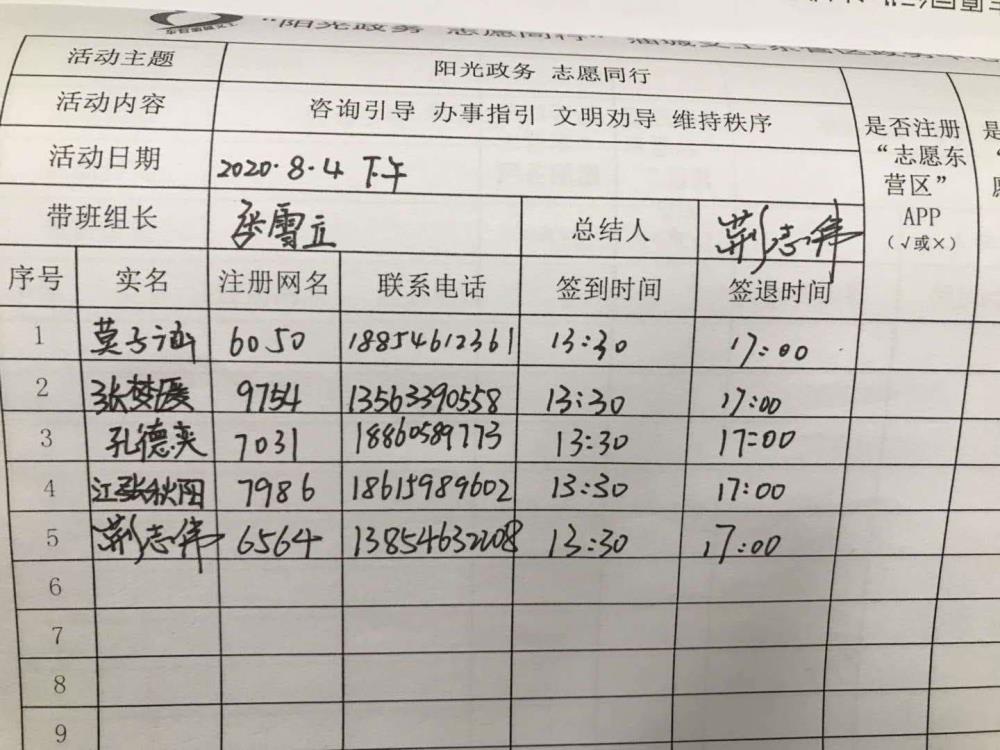 “阳光政务 志愿同行”油城义工东营区政务中心
活动主题 阳光政务 志愿同行
活动内容 咨询引导 办事指引 文明劝导 维持秩序
是否注册“志愿东营区”APP（√或×）
活动日期 2020.8.4 下午
带班组长 雪立 总结人 荆志伟
序号 实名 注册网名 联系电话 签到时间 签退时间
1 莫子 6050 18854612361 13:30 17:00
2 张梦媛 9754 13563390558 13:30 17:00
3 孔德奕 7031 18860589773 13:30 17:00
4 江张秋阳 7986 18615989602 13:30 17:00
5 荆志伟 6564 13854632208 13:30 17:00
6
7
8
9